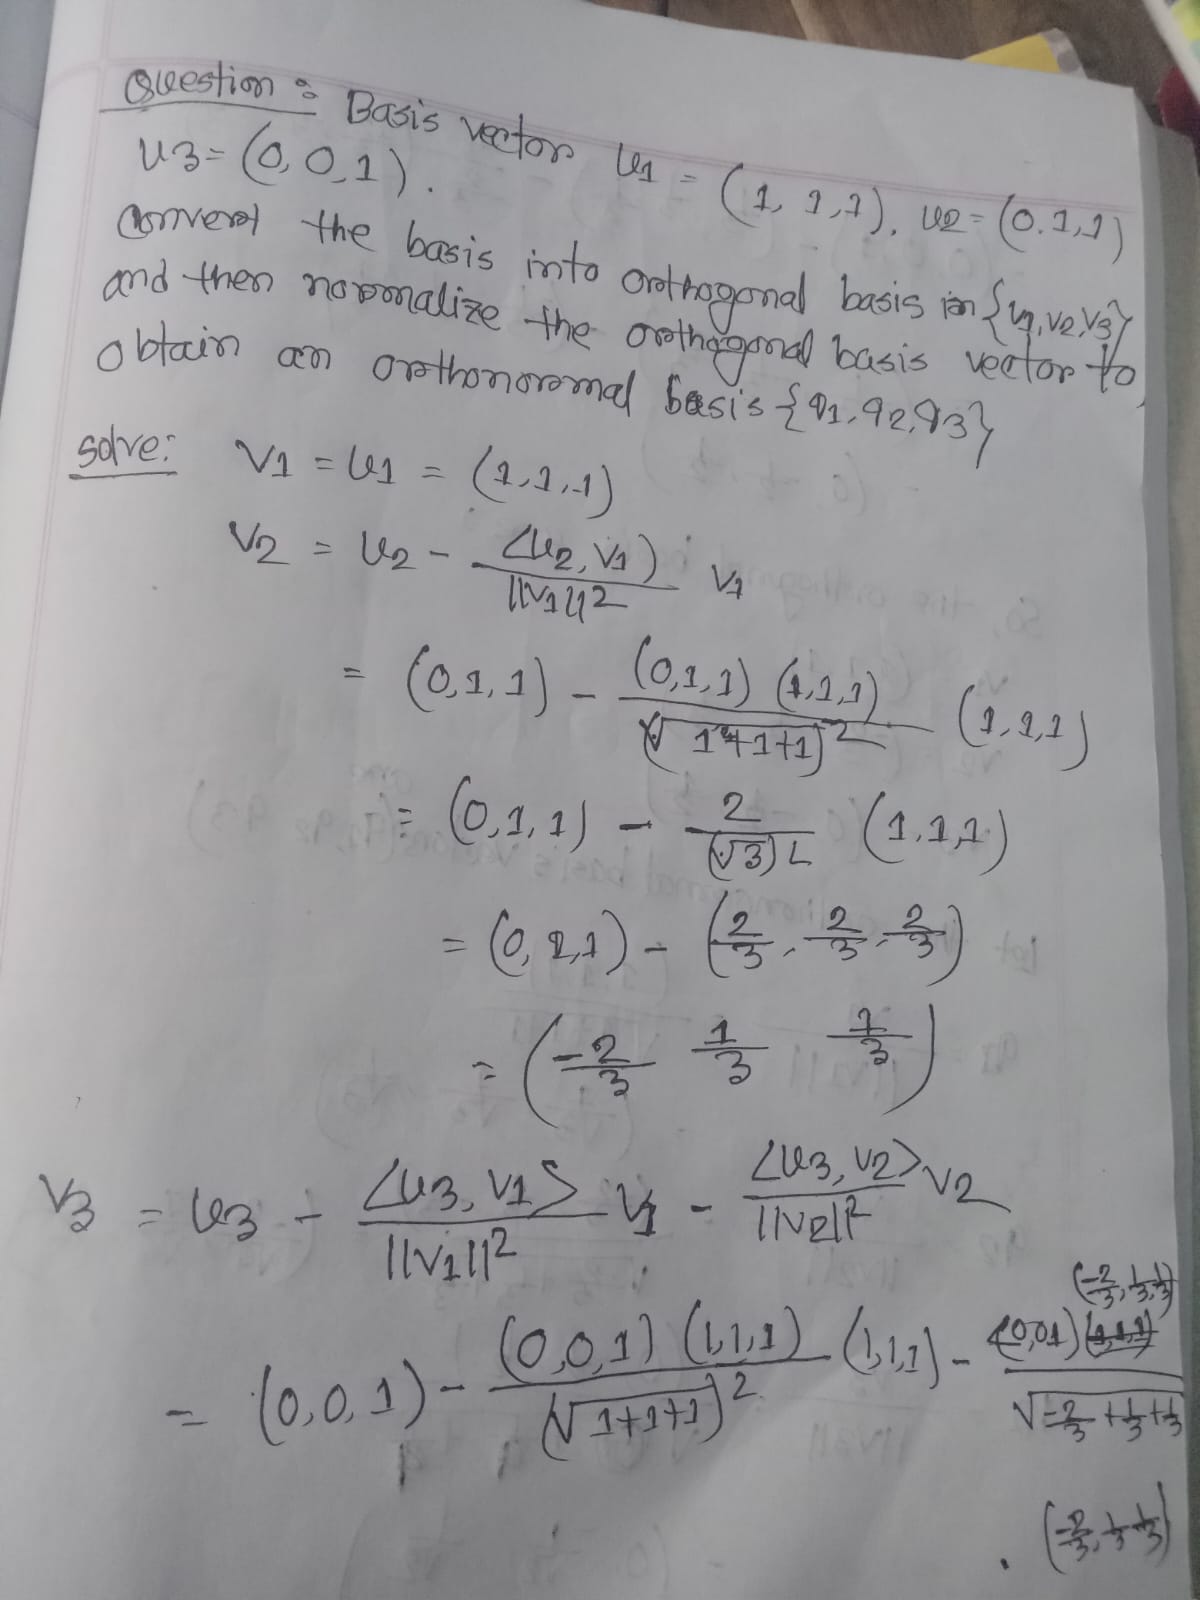 Question : Basis vector u1 = (1, 1, 1), u2 = (0, 1, 1)
u3 = (0, 0, 1).
Convert the basis into orthogonal basis in {v1, v2, v3}
and then normalize the orthogonal basis vector to
obtain an orthonormal basis {q1, q2, q3}
solve: V1 = u1 = (1, 1, 1)
V2 = u2 - <u2, v1) / ||v1||2 V1
= (0, 1, 1) - (0, 1, 1) (1, 1, 1) / (√1+1+1)2 (1, 1, 1)
= (0, 1, 1) - 2 / (√3)2 (1, 1, 1)
= (0, 1, 1) - (2/3, 2/3, 2/3)
= (-2/3 1/3 1/3)
V3 = u3 - <u3, v1> / ||v1||2 V1 - <u3, v2> / ||v2||2 v2
= (0, 0, 1) - (0, 0, 1) (1, 1, 1) / (√1+1+1)2 (1, 1, 1) - (0, 0, 1) (-2/3, 1/3, 1/3) / √-2/3 + 1/3 + 1/3
. (-2/3, 1/3 1/3)